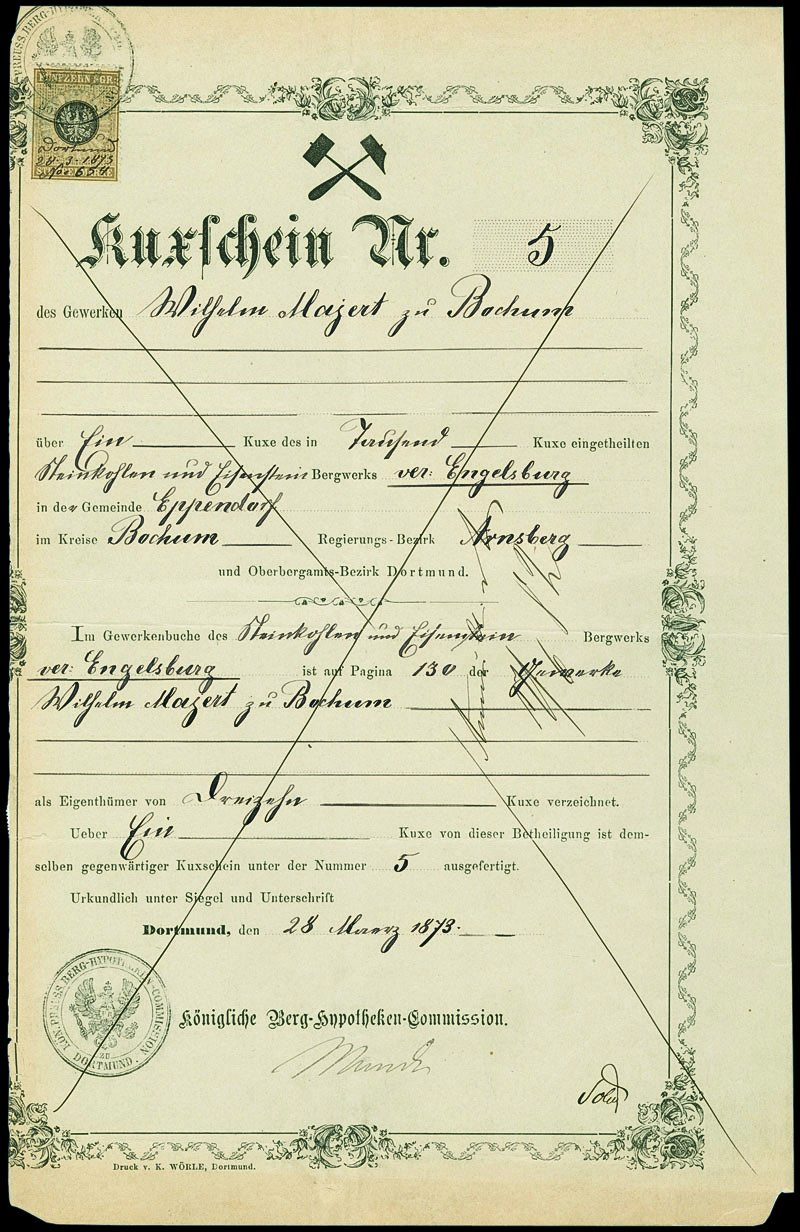 FÜNFZEHN GR.
Dortmund
28.3.1873
Kuxschein Nr. 5
des Gewerken Wilhelm Majert zu Bochum
über Ein Kuxe des in Tausend Kuxe eingetheilten
Steinkohlen und Eisenstein Bergwerks ver: Engelsburg
in der Gemeinde Eppendorf
im Kreise Bochum Regierungs-Bezirk Arnsberg
und Oberbergamts-Bezirk Dortmund.
Im Gewerkenbuche des Steinkohlen und Eisenstein Bergwerks
ver: Engelsburg ist auf Pagina 130 der Gewerke
Wilhelm Majert zu Bochum
als Eigenthümer von Dreizehn Kuxe verzeichnet.
Ueber Ein Kuxe von dieser Betheiligung ist dem-
selben gegenwärtiger Kuxschein unter der Nummer 5 ausgefertigt.
Urkundlich unter Siegel und Unterschrift
Dortmund, den 28 Maerz 1873.
KÖN. PREUSS. BERG-HYPOTHEKEN-COMMISSION
ZU
DORTMUND.
Königliche Berg-Hypotheken-Commission.
Druck v. K. WÖRLE, Dortmund.